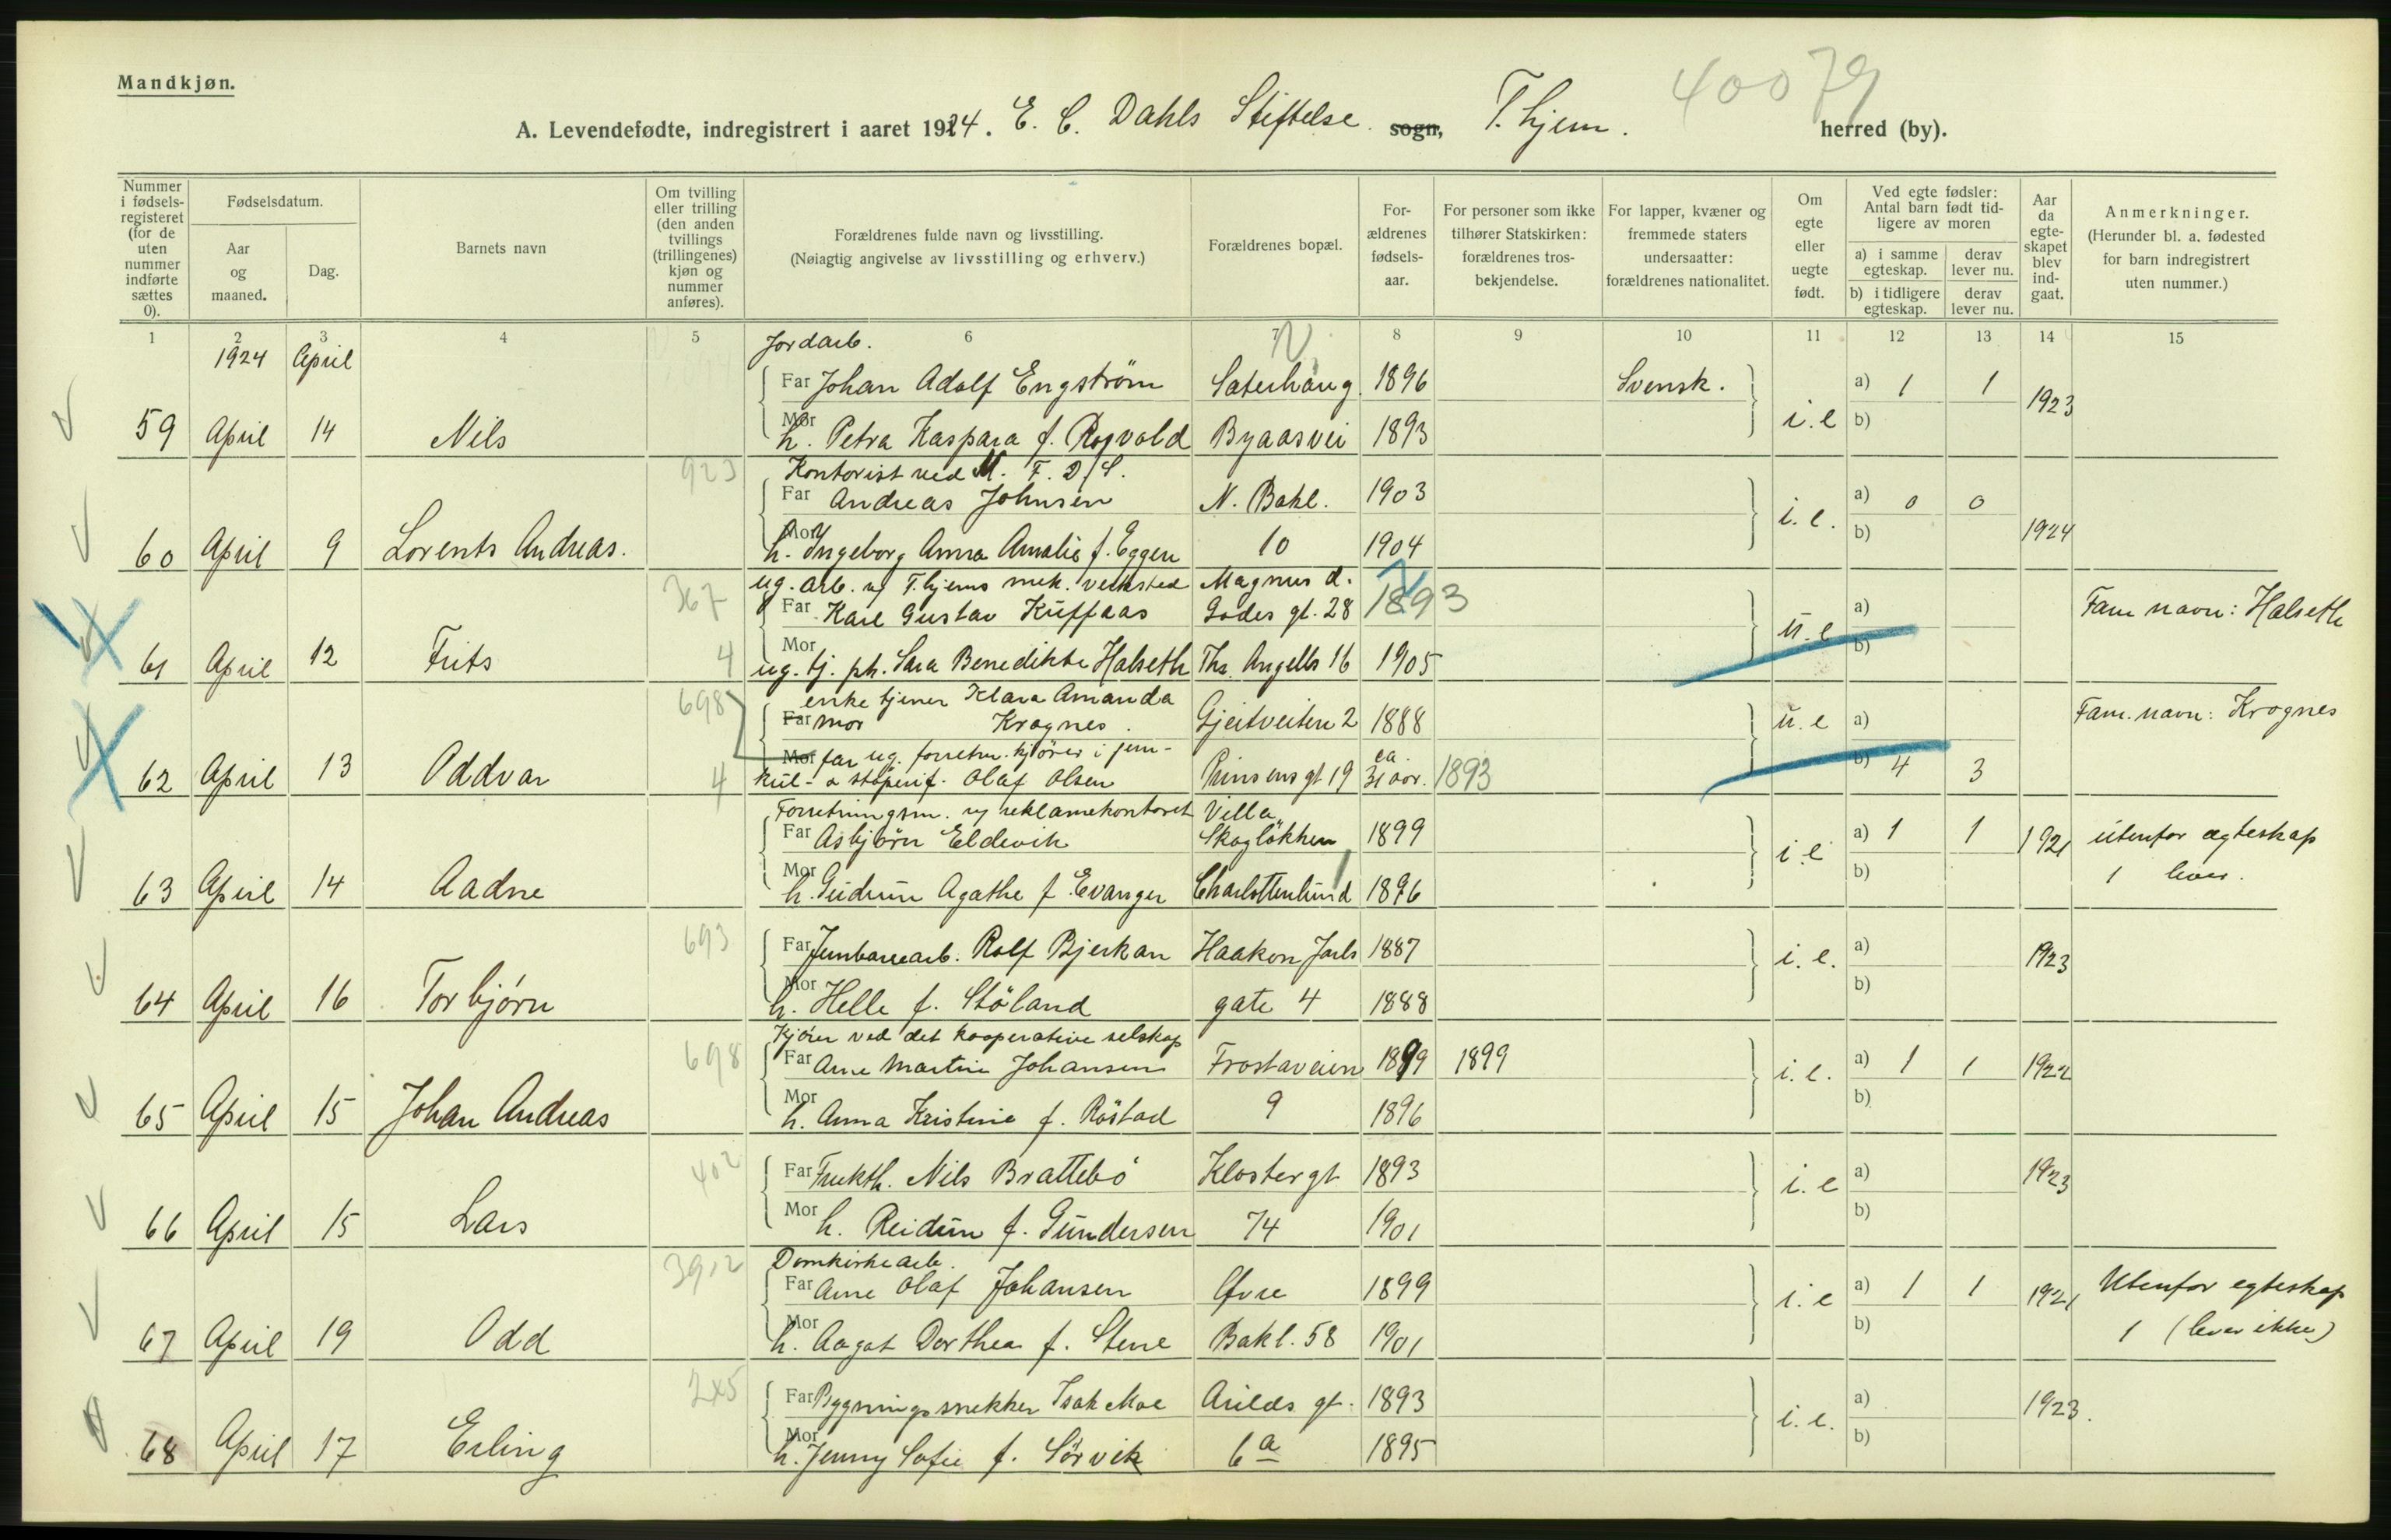 40079
Mandkjøn.
A. Levendefødte, indregistrert i aaret 1924. E. C. Dahls Stiftelse. sogn, T.hjem. herred (by).
Nummer i fødsels-registeret (for de uten nummer indførte sættes 0).
Fødselsdatum.
Aar og maaned.
Dag.
Barnets navn
Om tvilling eller trilling (den anden tvillings (trillingenes) kjøn og nummer anføres).
Forældrenes fulde navn og livsstilling.
(Nøiagtig angivelse av livsstilling og erhverv.)
Forældrenes bopæl.
For-ældrenes fødsels-aar.
For personer som ikke tilhører Statskirken: forældrenes tros-bekjendelse.
For lapper, kvæner og fremmede staters undersaatter: forældrenes nationalitet.
Om egte eller uegte født.
Ved egte fødsler: Antal barn født tid-ligere av moren
a) i samme egteskap. derav lever nu.
b) i tidligere egteskap. derav lever nu.
Aar da egte-skapet blev ind-gaat.
Anmerkninger.
(Herunder bl. a. fødested for barn indregistrert uten nummer.)
1 2 3 4 5 6 7 8 9 10 11 12 13 14 15
1924 April
Jordarb.
Far Johan Adolf Engström Saterhaug 1896 Svensk. a) 1 1 1923
59 April 14 Nils Mor h. Petra Kaspara f. Rogvold Byaasvei 1893 i.e b)
923 Kontorist ved M. F. D/S.
Far Andreas Johnsen N. Bakl. 1903 a) 0 0
60 April 9 Lorents Andreas. Mor h. Ingeborg Anna Amalie f. Eggen 10 1904 i.e. b) 1924
367 ug. arb. v/ T.hjems mek. verksted Magnus d.
Far Karl Gustav Kuffaas Godes gt. 28 1893 a) Fam navn: Halseth
61 April 12 Frits 4 Mor ug. tj. ph. Sara Benedikte Halseth Ths. Angells 16 1905 u.e b)
698 enke tjener Klara Amanda
Far mor Krognes. Gjeitveiten 2 1888 u.e a) Fam. navn: Krognes
Mor far ug. forretn. kjörer i jern-
62 April 13 Oddvar 4 kul- & støperif. Olaf Olsen Prinsens gt 19 ca. 31 aar. 1893 b) 4 3
Forretningsm. v/ reklamekontoret Villa
Far Asbjörn Eldevik Skoglökken 1899 a) 1 1 1921 utenfor ægteskap
63 April 14 Aadne Mor h. Gudrun Agathe f. Evanger Charlottenlund 1896 i.e b) 1 lever.
693 Far Jernbanearb. Rolf Bjerkan Haakon Jarls 1887 a) 1923
64 April 16 Torbjørn Mor h. Helle f. Stöland gate 4 1888 i.e. b)
Kjörer ved det kooperative selskap
698 Far Arne Martin Johansen Frostaveien 1899 1899 a) 1 1 1922
65 April 15 Johan Andreas Mor h. Anna Kristine f. Röstad 9 1896 i.e. b)
402 Far Frukth. Nils Brattebö Klostergt 1893 a) 1923
66 April 15 Lars Mor h. Reidun f. Gundersen 74 1901 i.e b)
3912 Domkirkearb.
Far Arne Olaf Johansen Øvre 1899 a) 1 1 1921 Utenfor egteskap
67 April 19 Odd Mor h. Aagot Dorthea f. Stene Bakl. 58 1901 i.e b) 1 (lever ikke)
245 Far Bygningssnekker Isak Moe Arilds gt. 1893 a) 1923.
68 April 17 Erling Mor h. Jenny Sofie f. Sörvik 6a 1895 i.e. b)